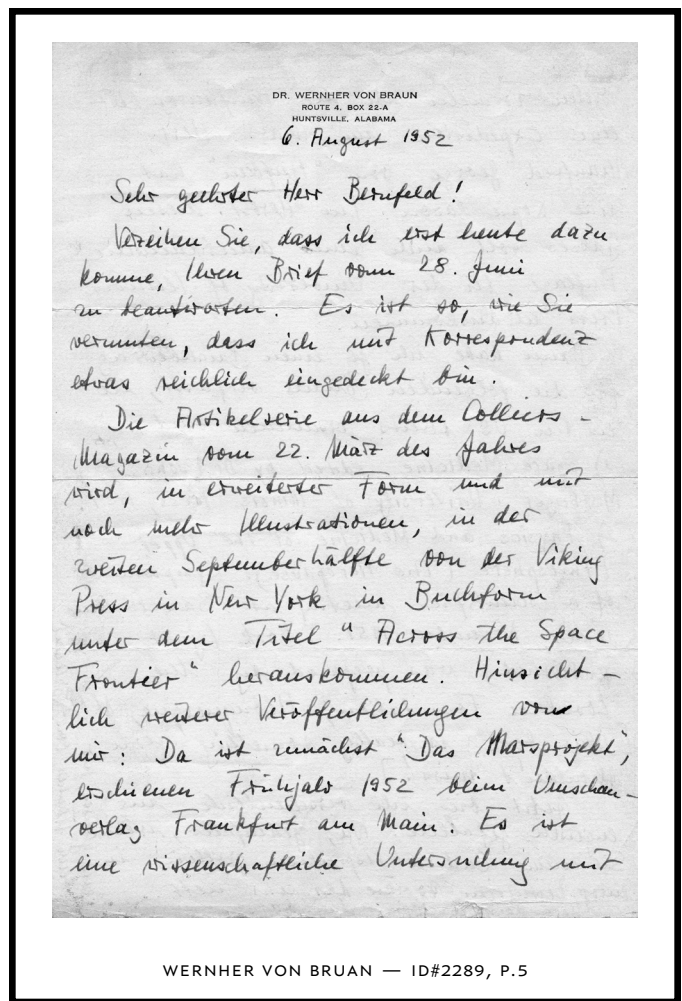 DR. WERNHER VON BRAUN
ROUTE 4, BOX 22-A
HUNTSVILLE, ALABAMA
6. August 1952
Sehr geehrter Herr Bernfeld!
Verzeihen Sie, dass ich erst heute dazu
komme, Ihren Brief vom 28. Juni
zu beantworten. Es ist so, wie Sie
vermuten, dass ich mit Korrespondenz
etwas reichlich eingedeckt bin.
Die Artikelserie aus dem Colliers-
Magazin vom 22. März des Jahres
wird, in erweiterter Form und mit
noch mehr Illustrationen, in der
zweiten Septemberhälfte von der Viking
Press in New York in Buchform
unter dem Titel "Across the Space
Frontier" herauskommen. Hinsicht-
lich weiterer Veröffentlichungen von
mir: Da ist zunächst "Das Marsprojekt",
erschienen Frühjahr 1952 beim Umschau-
verlag Frankfurt am Main. Es ist
eine wissenschaftliche Untersuchung mit
WERNHER VON BRUAN — ID#2289, P.5